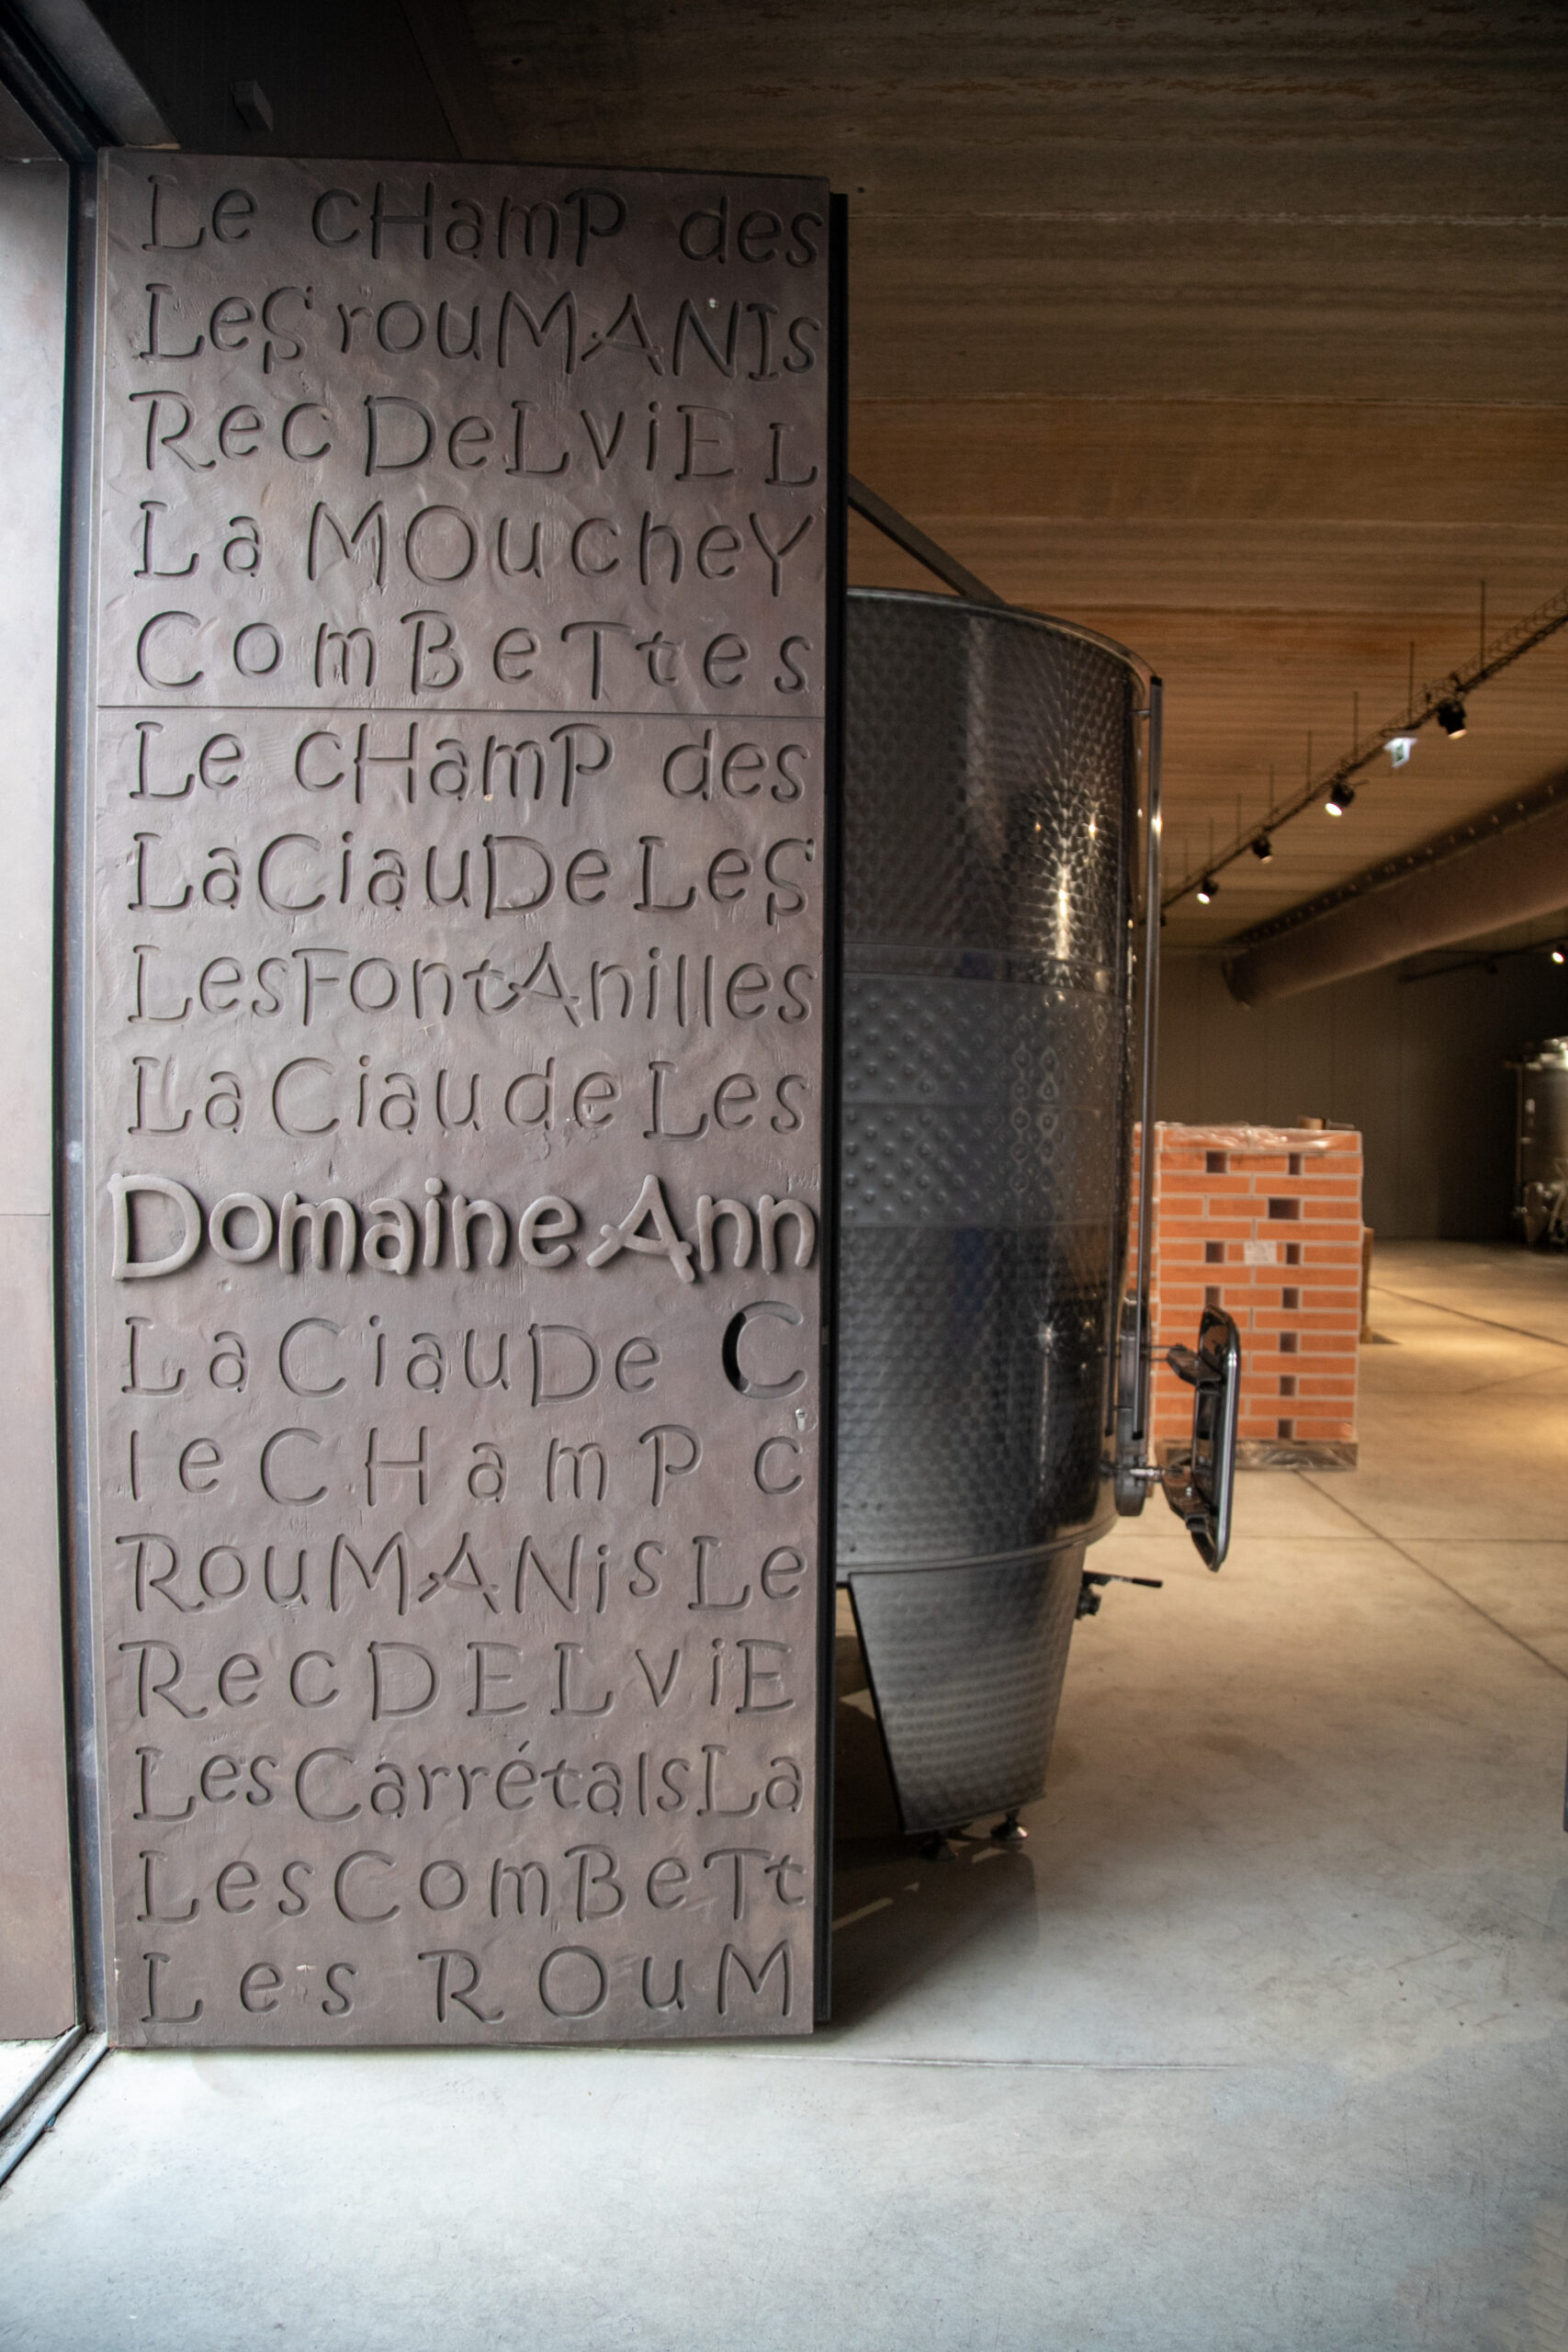 Le cHamP des
LeS rouMANIs
Rec DeL viEL
La MOucheY
ComBeTtes
Le cHamP des
LaCiauDe LeS
LesFontAnilles
La Ciaude Les
Domaine Ann
La CiauDe C
leCHamP c
RouMANis Le
Rec DELviE
LesCarrétalsLa
LesComBeTt
Les ROuM